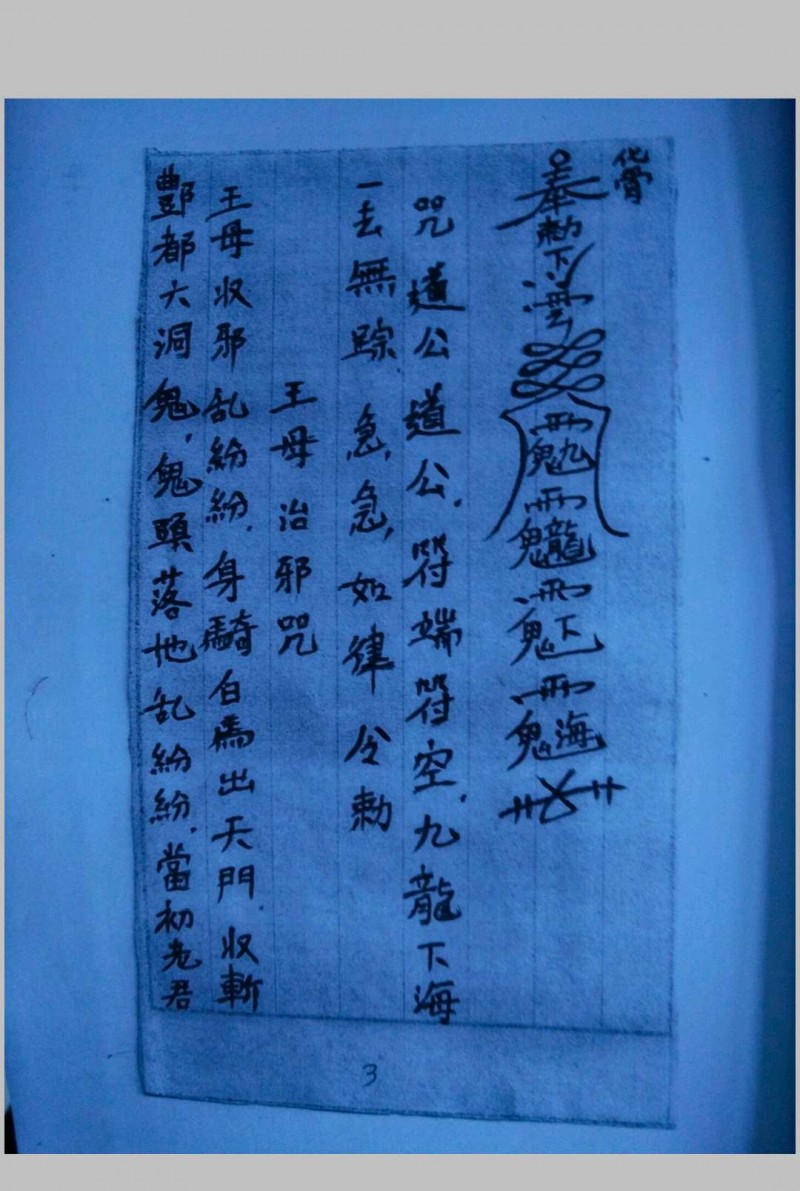 化骨
奉勅下
咒道公道公，符端符空，九龍下海
一去無踪，急，急，如律令勅
王母治邪咒
王母收邪乱紛紛，身騎白馬出天門，收斬
酆都六洞鬼，鬼頭落地乱紛紛，當初老君
3